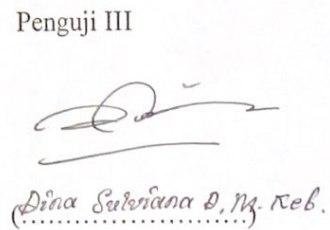 Penguji III
(Dina Sulviana D, M. Keb.)